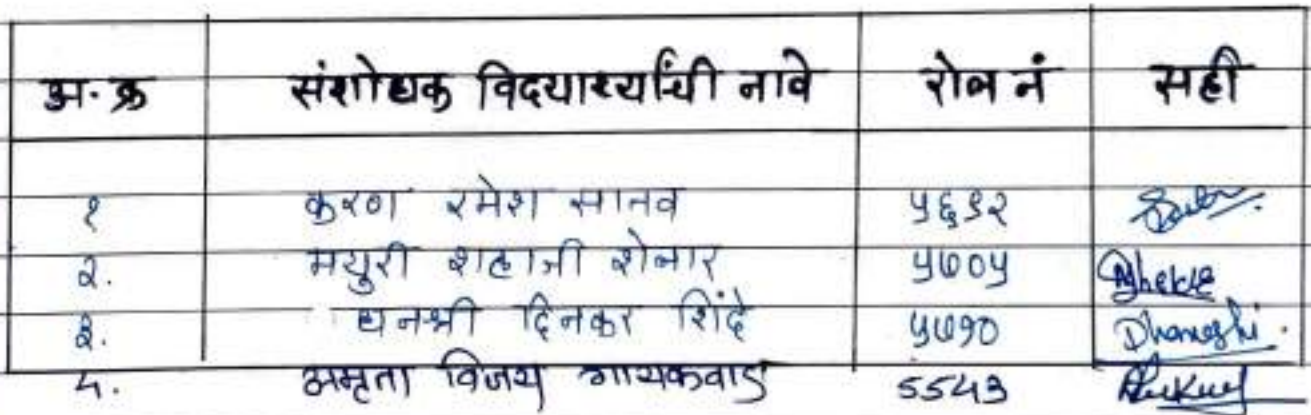 अ.क्र संशोधक विद्यार्थ्यांची नावे रोल नं सही
१ करण रमेश सानव ५६९२
२. मयुरी शहाजी शेलार ५७०५
३. धनश्री दिनकर शिंदे ५७१० Dhanashri.
4. अमृता विजय गायकवाड 5543